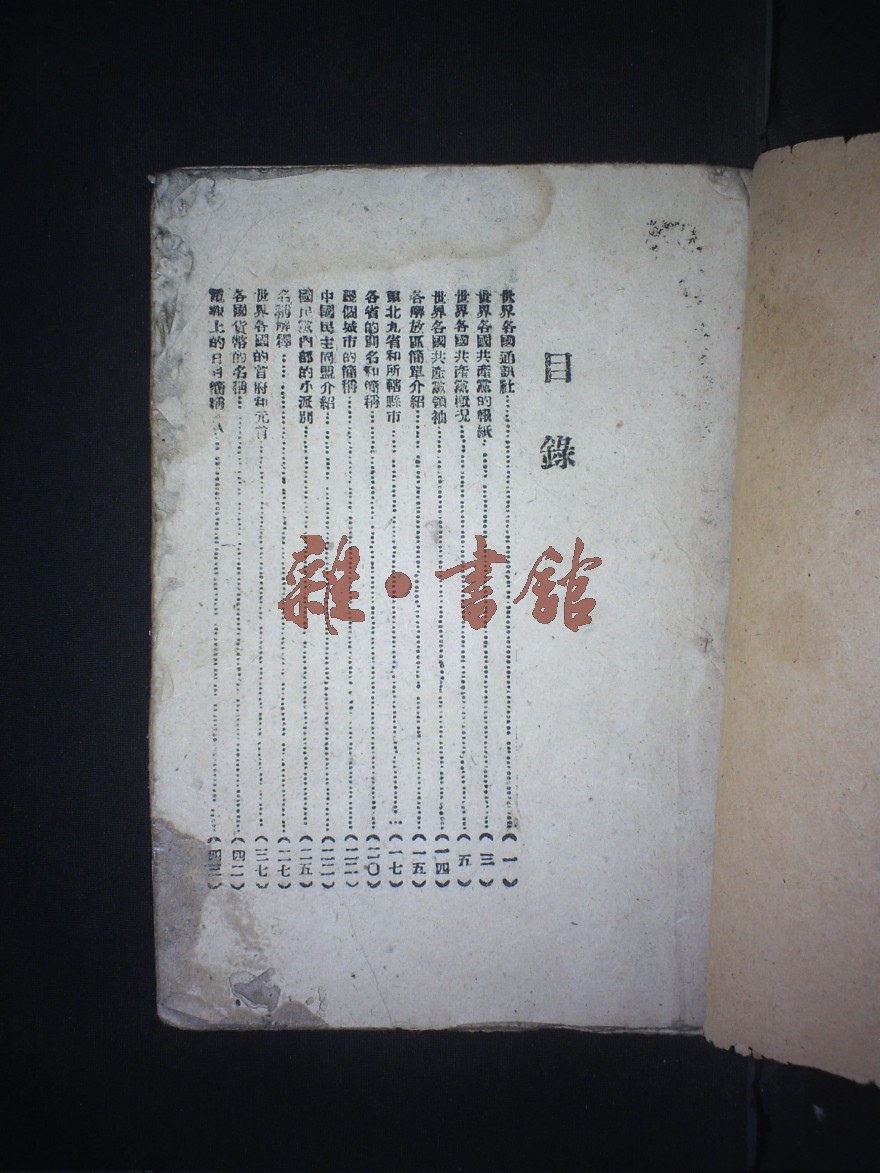 目錄
世界各國通訊社……(一)
世界各國共產黨的報紙……(三)
世界各國共產黨概況……(五)
世界各國共產黨領袖……(一四)
各解放區簡單介紹……(一五)
東北九省和所轄縣市……(一七)
各省的別名和簡稱……(二〇)
幾個城市的簡稱……(二二)
中國民主同盟介紹……(二二)
國民黨內部的小派別……(二五)
名詞解釋……(二七)
世界各國的首府和元首……(三七)
各國貨幣的名稱……(四二)
電報上的日期簡稱……(四三)
雜·書館